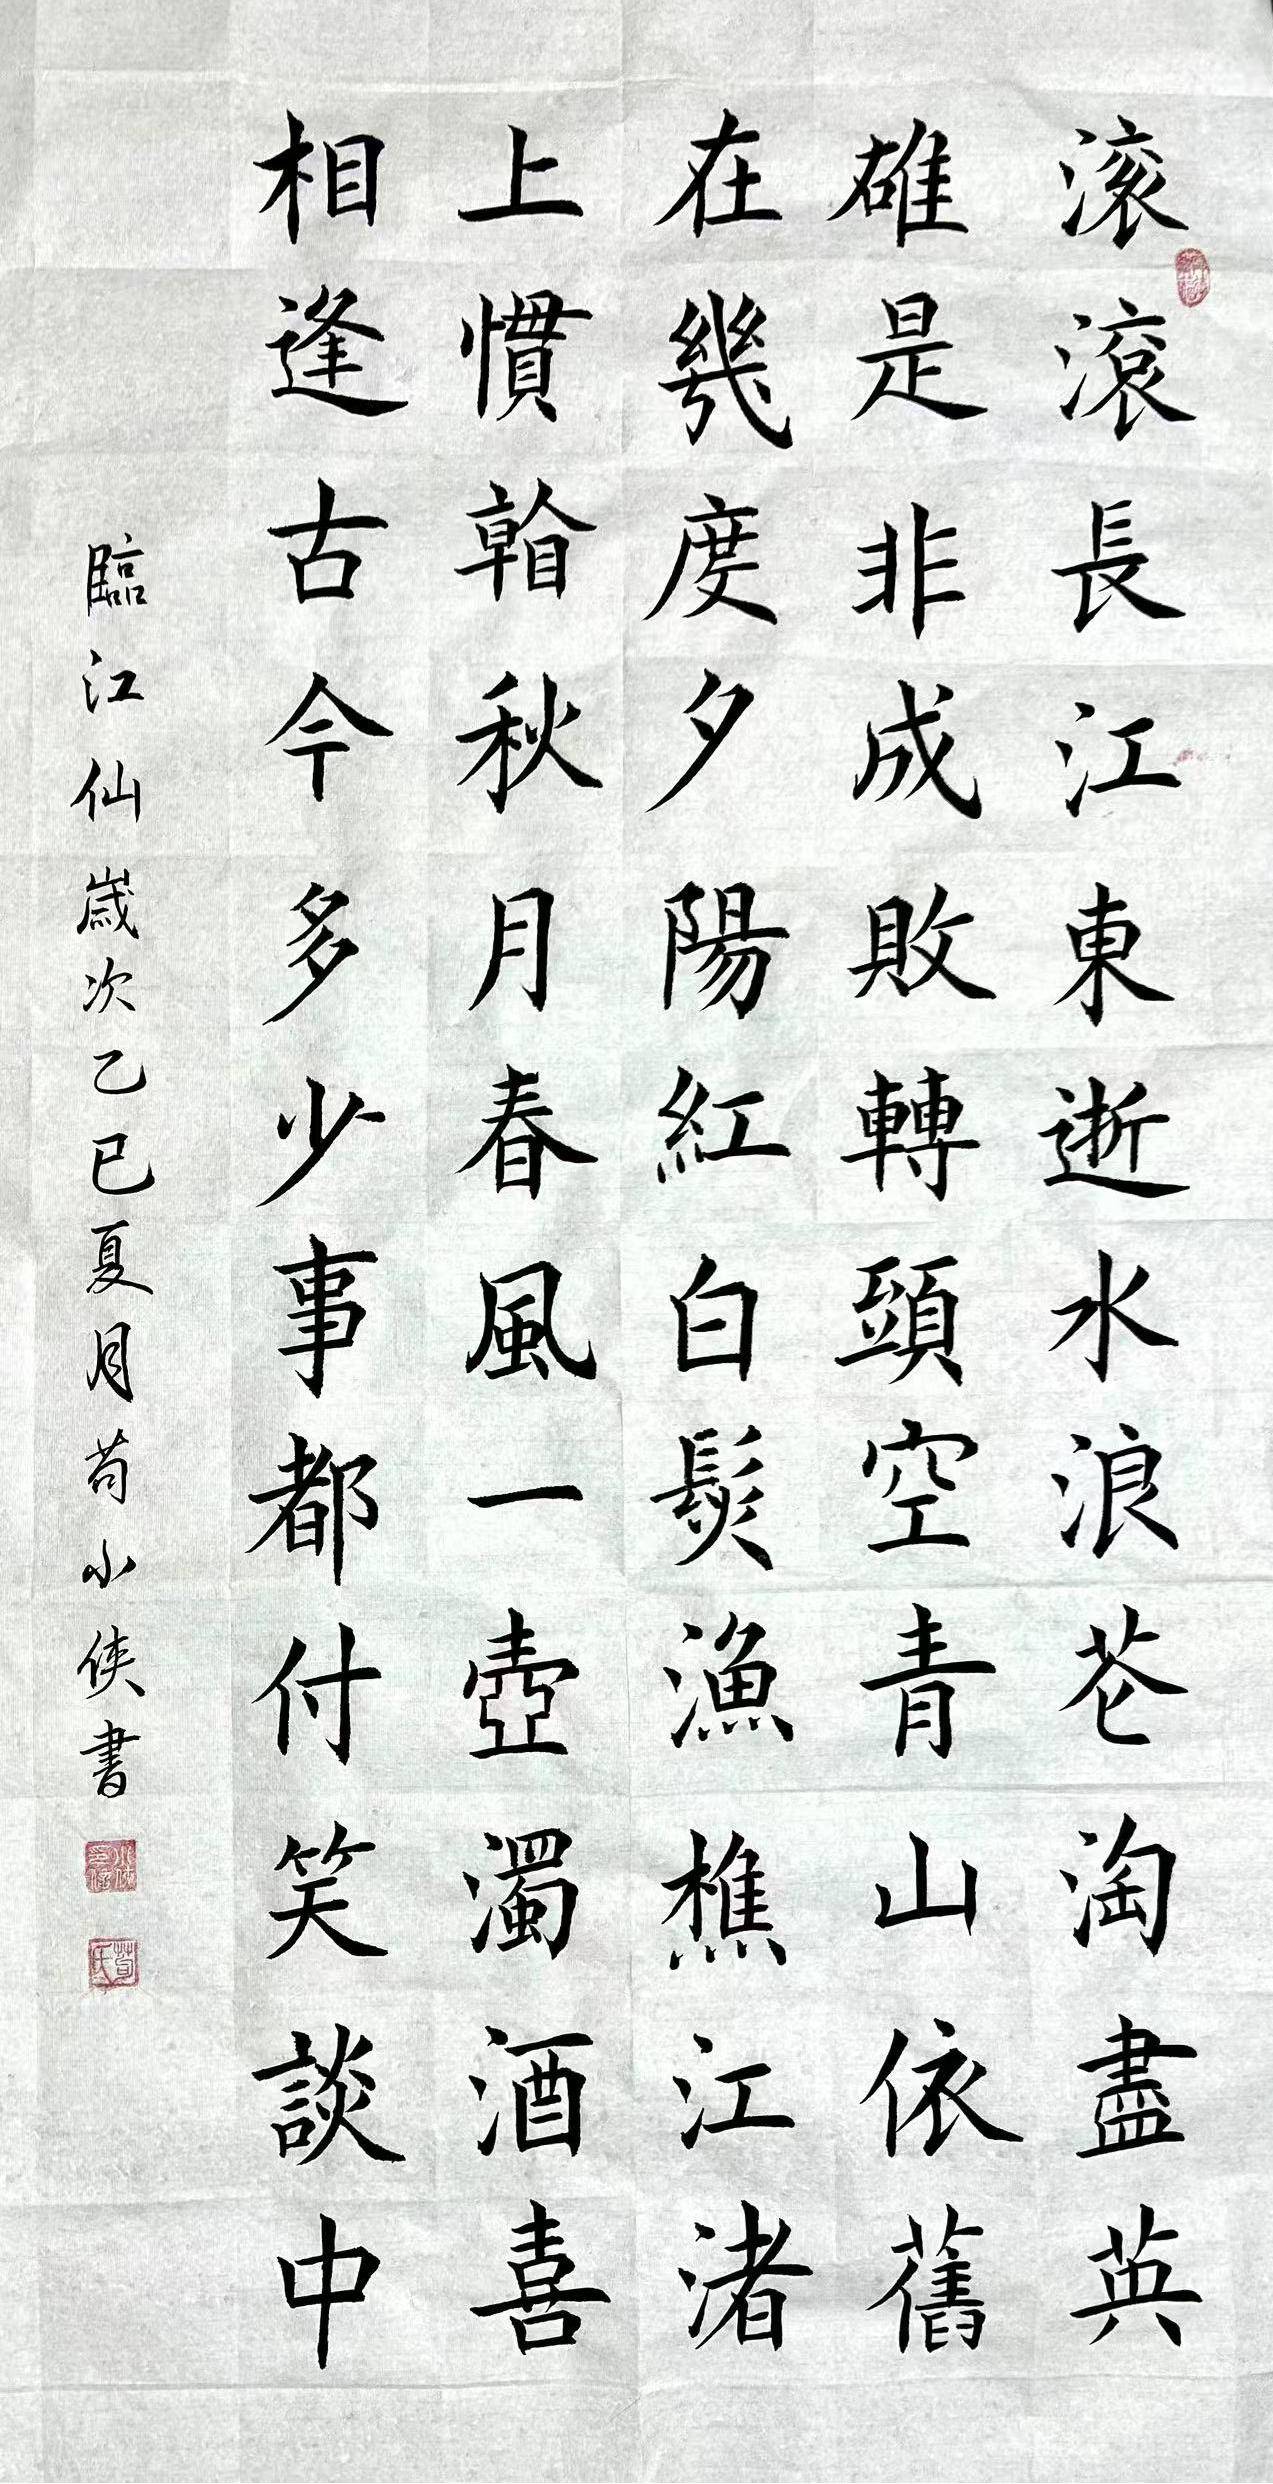 滚滾長江東逝水浪花淘盡英
雄是非成敗轉頭空青山依舊
在幾度夕陽紅白髮漁樵江渚
上慣䈣秋月春風一壺濁酒喜
相逢古今多少事都付笑談中
臨江仙歲次乙巳夏月苟小俠書